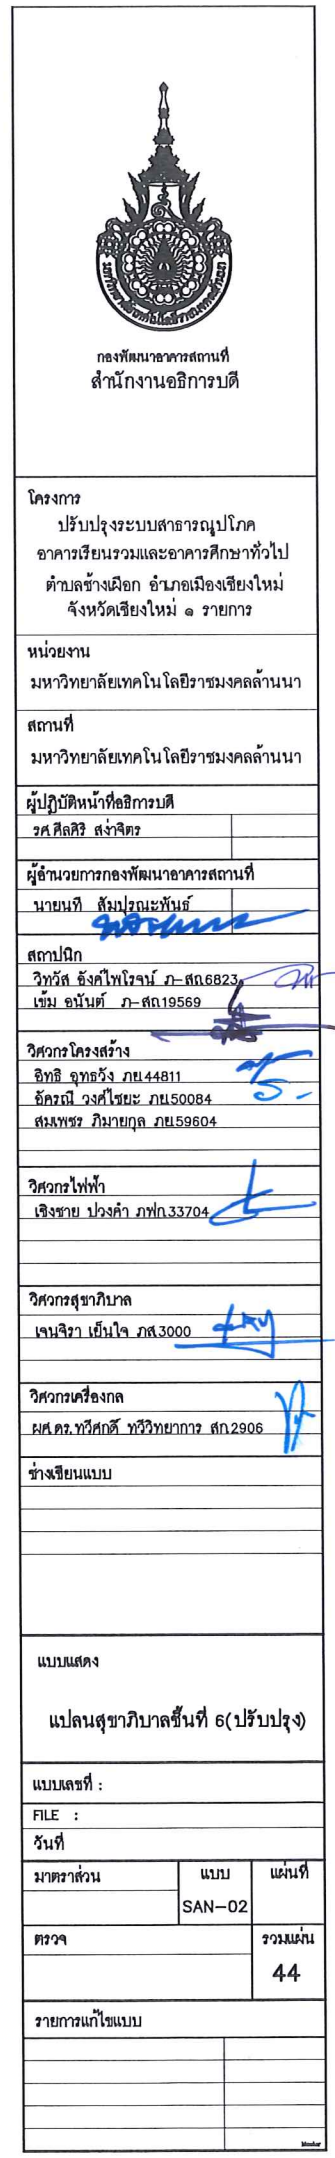 กองพัฒนาอาคารสถานที่
สำนักงานอธิการบดี
โครงการ
ปรับปรุงระบบสาธารณูปโภค
อาคารเรียนรวมและอาคารศึกษาทั่วไป
ตำบลช้างเผือก อำเภอเมืองเชียงใหม่
จังหวัดเชียงใหม่ ๑ รายการ
หน่วยงาน
มหาวิทยาลัยเทคโนโลยีราชมงคลล้านนา
สถานที่
มหาวิทยาลัยเทคโนโลยีราชมงคลล้านนา
ผู้ปฏิบัติหน้าที่อธิการบดี
รศ.ศีลศิริ สง่าจิตร
ผู้อำนวยการกองพัฒนาอาคารสถานที่
นายนที สัมปุรณะพันธ์
สถาปนิก
วิทวัส อังค์ไพโรจน์ ภ-สถ.6823
เข้ม อนันต์ ภ-สถ.19569
วิศวกรโครงสร้าง
อิทธิ อุทธวัง ภย.44811
อัครณี วงศ์ไชยะ ภย.50084
สมเพชร ภิมายกุล ภย.59604
วิศวกรไฟฟ้า
เชิงชาย ปวงคำ ภฟก.33704
วิศวกรสุขาภิบาล
เจนจิรา เย็นใจ ภส.3000
วิศวกรเครื่องกล
ผศ.ดร.ทวีศักดิ์ ทวีวิทยาการ สก.2906
ช่างเขียนแบบ
แบบแสดง
แปลนสุขาภิบาลชั้นที่ 6(ปรับปรุง)
แบบเลขที่ :
FILE :
วันที่
มาตราส่วน แบบ แผ่นที่
SAN-02
ตรวจ รวมแผ่น
44
รายการแก้ไขแบบ